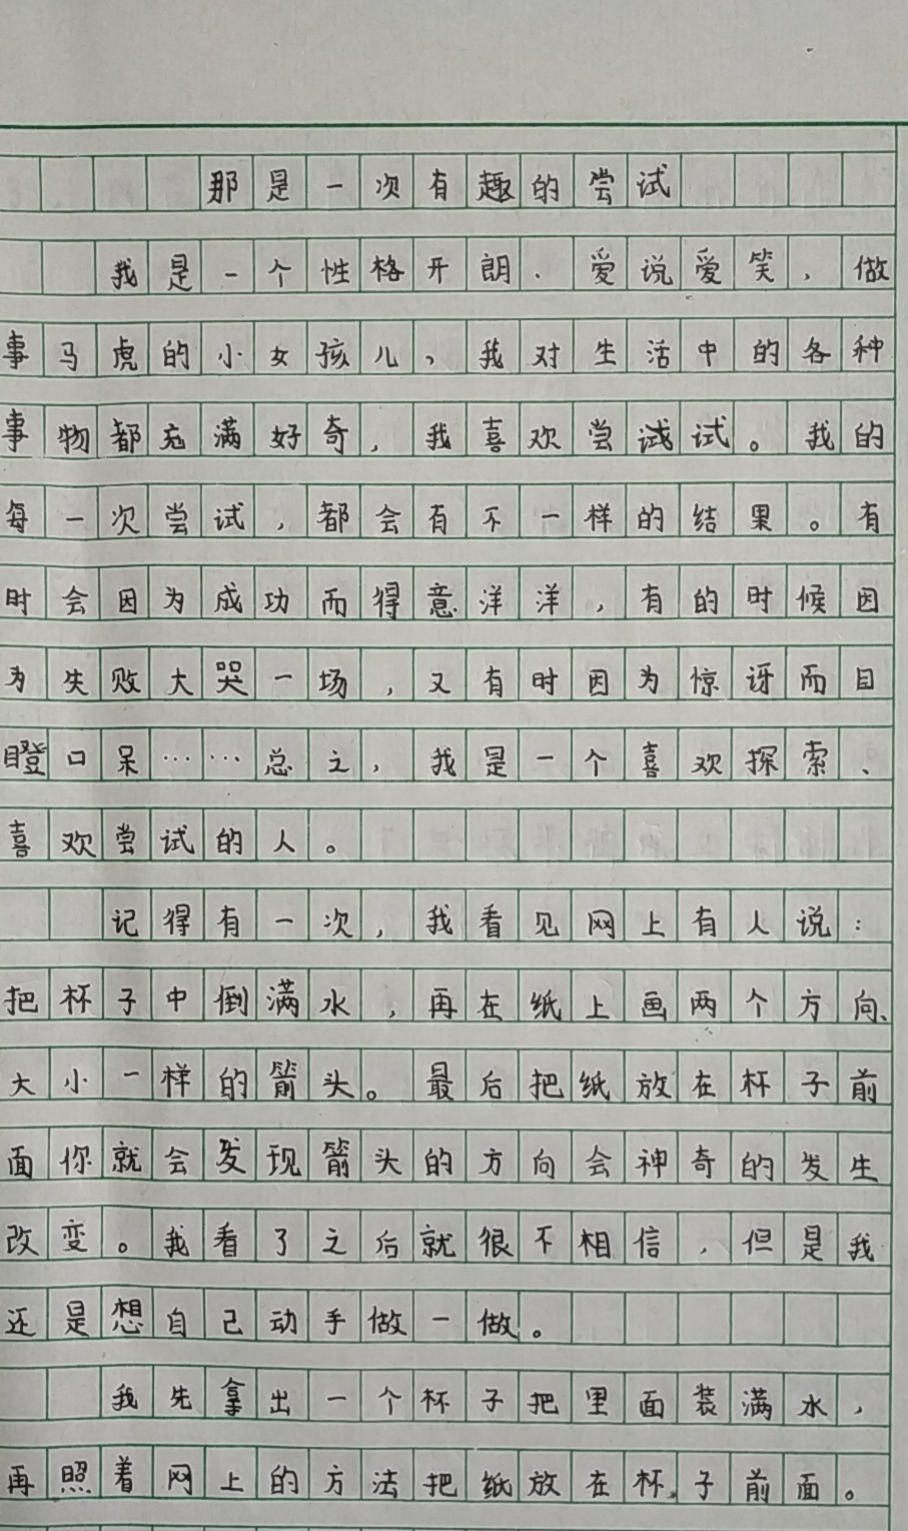 那是一次有趣的尝试
我是一个性格开朗、爱说爱笑,做
事马虎的小女孩儿,我对生活中的各种
事物都充满好奇,我喜欢尝试试。我的
每一次尝试,都会有不一样的结果。有
时会因为成功而得意洋洋,有的时候因
为失败大哭一场,又有时因为惊讶而目
瞪口呆……总之,我是一个喜欢探索、
喜欢尝试的人。
记得有一次,我看见网上有人说:
把杯子中倒满水,再在纸上画两个方向、
大小一样的箭头。最后把纸放在杯子前
面你就会发现箭头的方向会神奇的发生
改变。我看了之后就很不相信,但是我
还是想自己动手做一做。
我先拿出一个杯子把里面装满水,
再照着网上的方法把纸放在杯子前面。